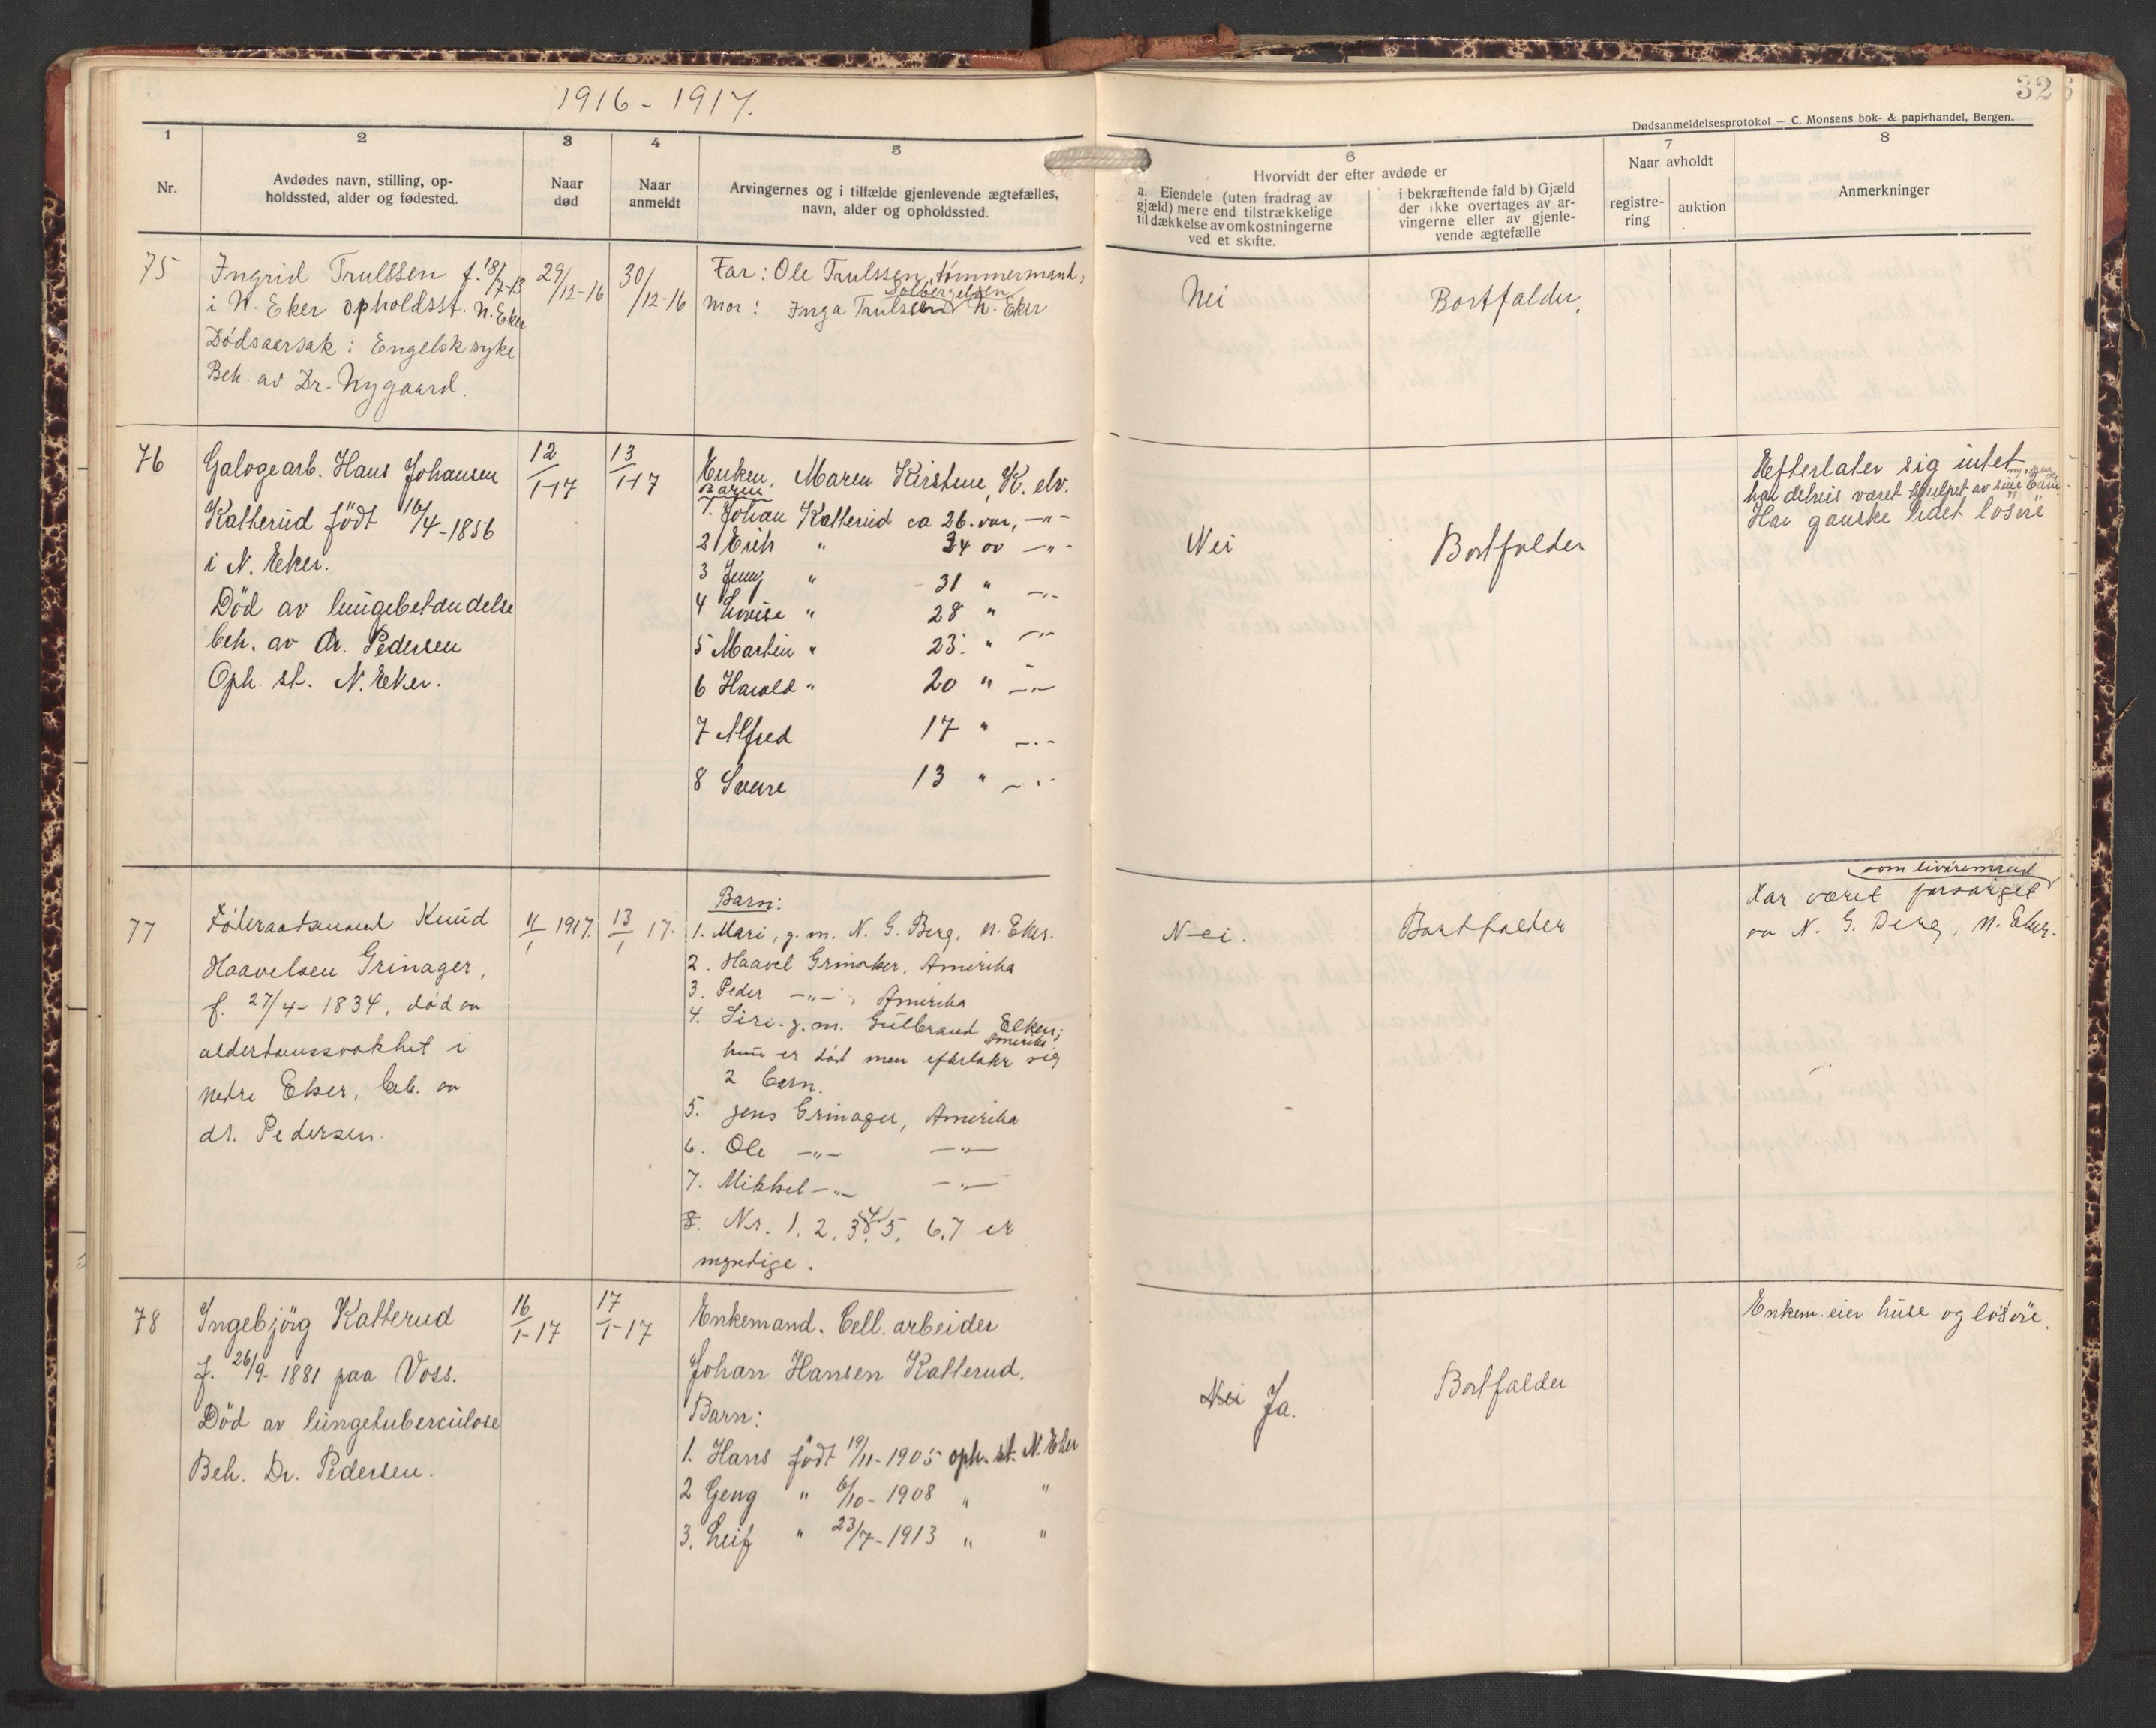 1916-1917.
32
Dødsanmeldelsesprotokol — C. Monsens bok- & papirhandel, Bergen.
1 2 3 4 5 6 7 8
Nr.
Avdødes navn, stilling, op-
holdssted, alder og fødested.
Naar
død
Naar
anmeldt
Arvingernes og i tilfælde gjenlevende ægtefælles,
navn, alder og opholdssted.
Hvorvidt der efter avdøde er
a. Eiendele (uten fradrag av
gjæld) mere end tilstrækkelige
til dækkelse av omkostningerne
ved et skifte.
i bekræftende fald b) Gjæld
der ikke overtages av ar-
vingerne eller av gjenle-
vende ægtefælle
Naar avholdt
registre-
ring
auktion
Anmerkninger
75
Ingrid Trulssen f. 18/7-13
i N. Eker opholdsst. N. Eker
Dødsaarsak: Engelsk syke
Beh. av Dr. Nygaard.
29/12-16
30/12-16
Far: Ole Trulssen, tømmermand,
Solbergelven
Mor: Inga Trulssen N. Eker
Nei
Bortfalder.
76
Galogearb. Hans Johansen
Katterud født 16/4-1856
i N. Eker.
Död av lungebetændelse
beh. av Dr. Pedersen
Oph. st. N. Eker.
12/1-17
13/1-17
Enken, Maren Kirstine, K. elv.
Barn
1. Johan Katterud ca 26. aar, -"-
2 Erik " 34 " -"-
3 Jenny " 31 " -"-
4 Lovise " 28 " -"-
5 Martin " 23 " -"-
6 Harald " 20 " -"-
7 Alfred 17 " -"-
8 Sverre 13 " -"-
Nei
Bortfalder
Efterlater sig intet
har delvis været hjulpet av sine barn.
Har ganske lidet løsøre
77
Føderaadsmand Knud
Haavelsen Grinager,
f. 27/4-1834, død av
alderdomssvakhet i
nedre Eker, beh. av
dr. Pedersen.
11/1 1917.
13/1 17.
Barn:
1. Mari, g.m. N. G. Berg, N. Eker.
2. Haavel Grinaker, Amerika
3. Peder -"-, Amerika
4. Siri g.m. Gulbrand Elken,
Amerika
hun er død men efterlater sig
2 barn.
5. Jens Grinager, Amerika
6. Ole -"- -"-
7. Mikkel -"- -"-
8. Nr. 1, 2, 3, 4, 5, 6, 7 er
myndige.
Nei.
Bortfalder
som livøremand
Har været forsørget
av N. G. Berg, N. Eker.
78
Ingebjörg Katterud
f. 26/9-1881 paa Voss.
Död av lungetuberculose
Beh. Dr. Pedersen.
16/1-17
17/1-17
Enkemand. Cell. arbeider
Johan Hansen Katterud.
Barn:
1. Hans født 19/11-1905 oph. st. N. Eker
2 Geng " 6/10-1908 " "
3. Leif " 23/7-1913 " "
Nei Ja.
Bortfalder
Enkem. eier huse og løsøre.